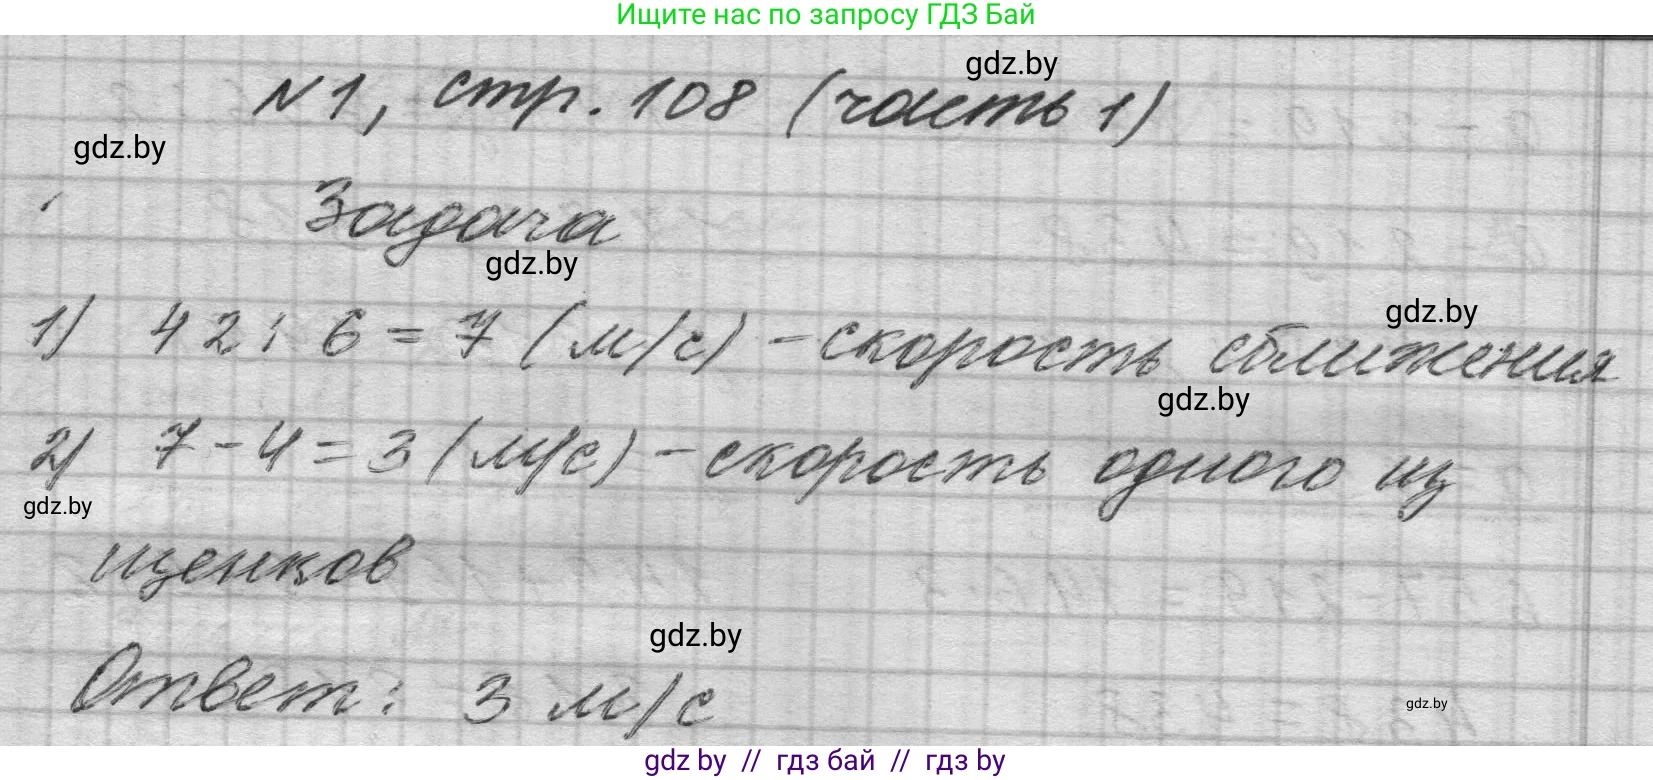 Ищите нас по запросу ГДЗ Бай
gdz.by
№1, стр. 108 (часть 1)
gdz.by
Задача
gdz.by
gdz.by
1) 42 : 6 = 7 (м/с) - скорость сближения
gdz.by
2) 7 - 4 = 3 (м/с) - скорость одного из
gdz.by
щенков
gdz.by
Ответ: 3 м/с
gdz.by
gdz by // гдз бай // гдз by